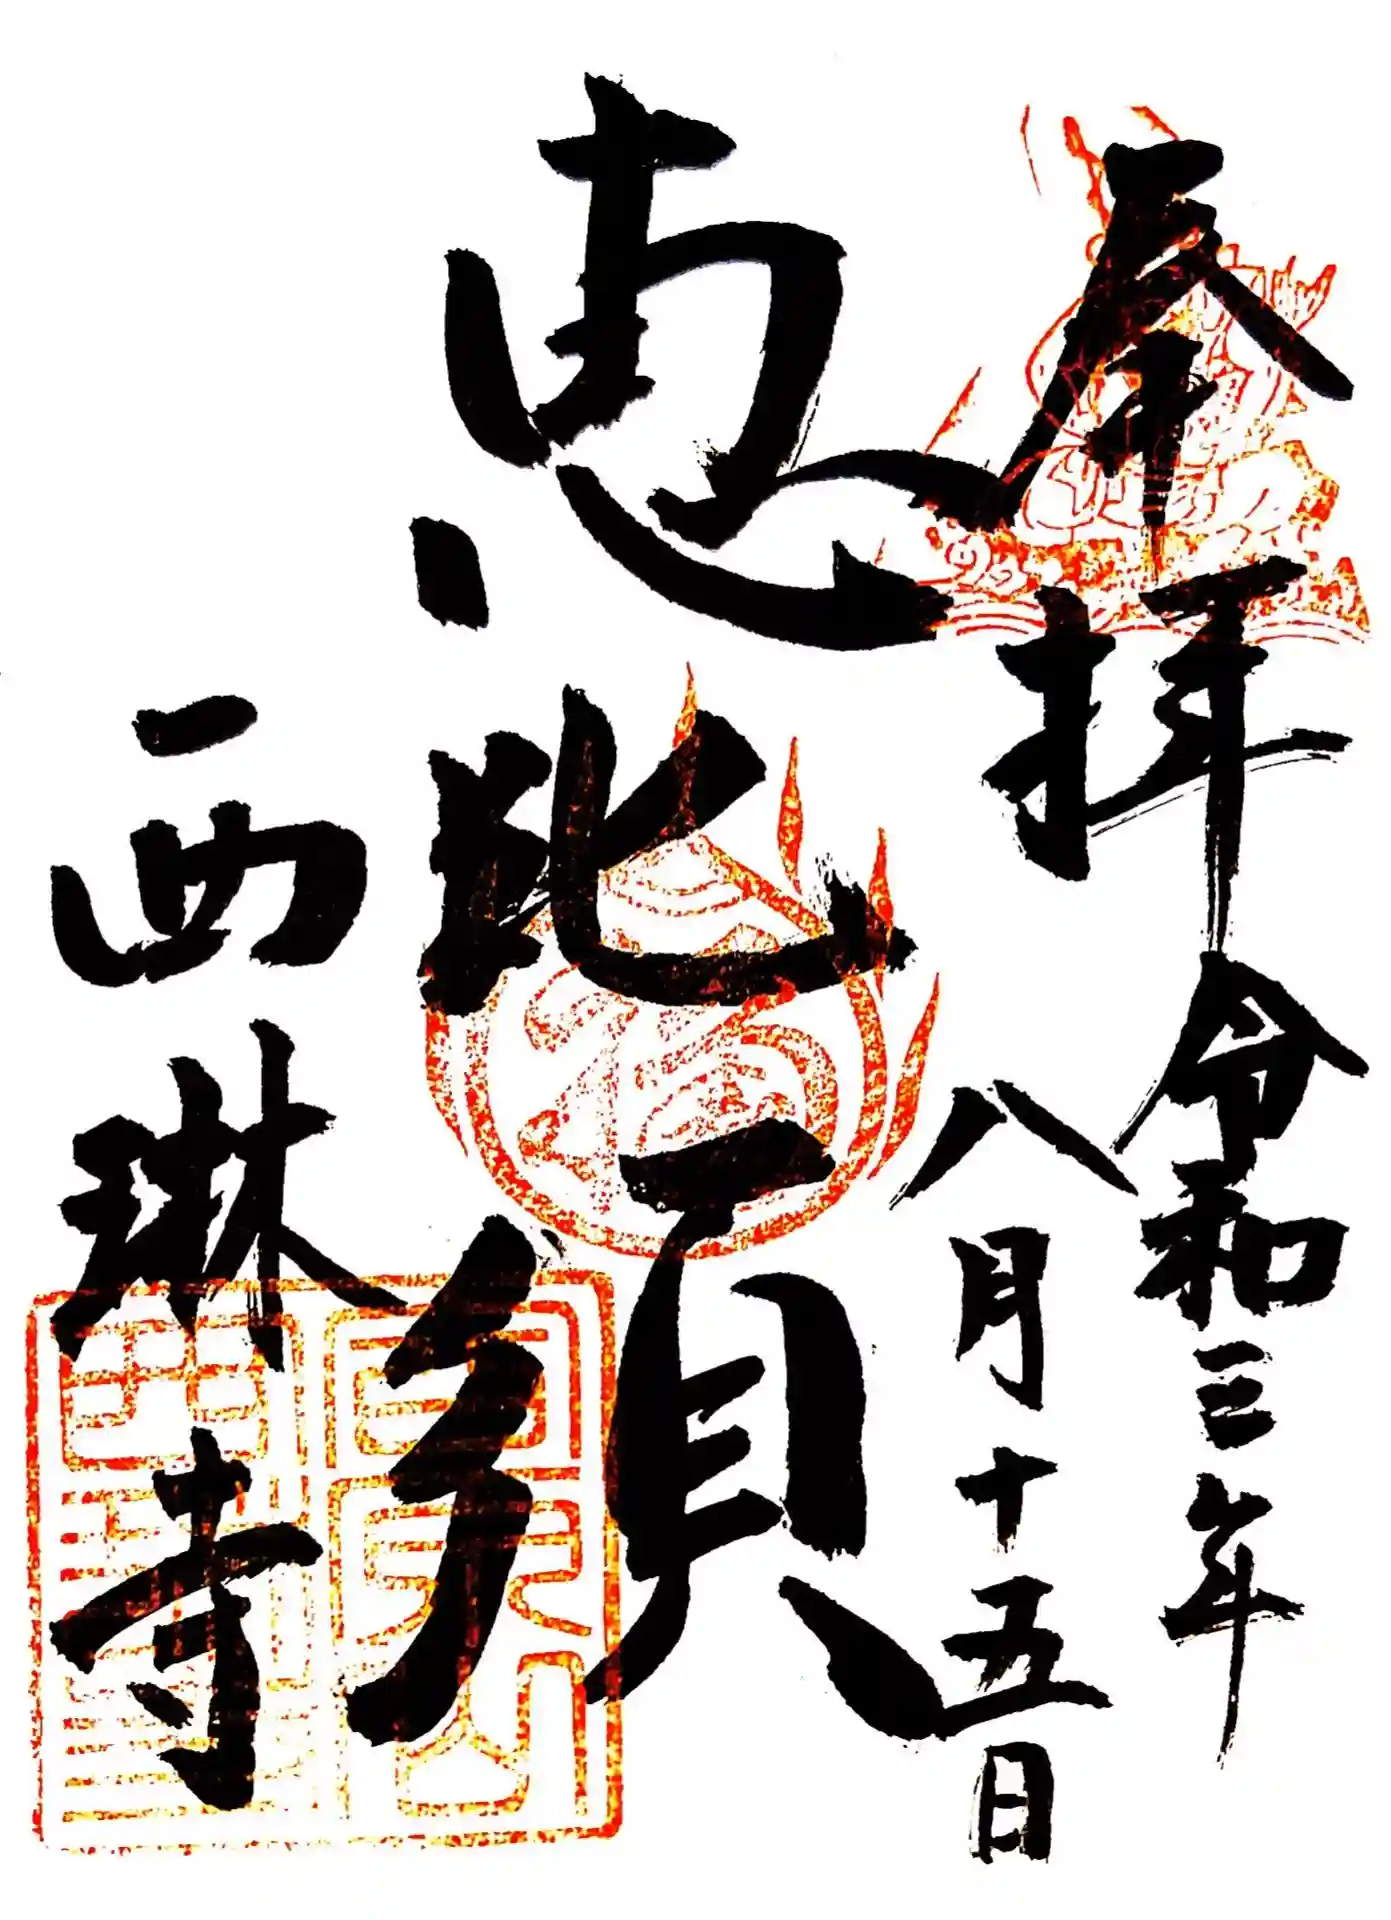 奉拝
令和三年
八月十五日
恵比須
福
西琳寺